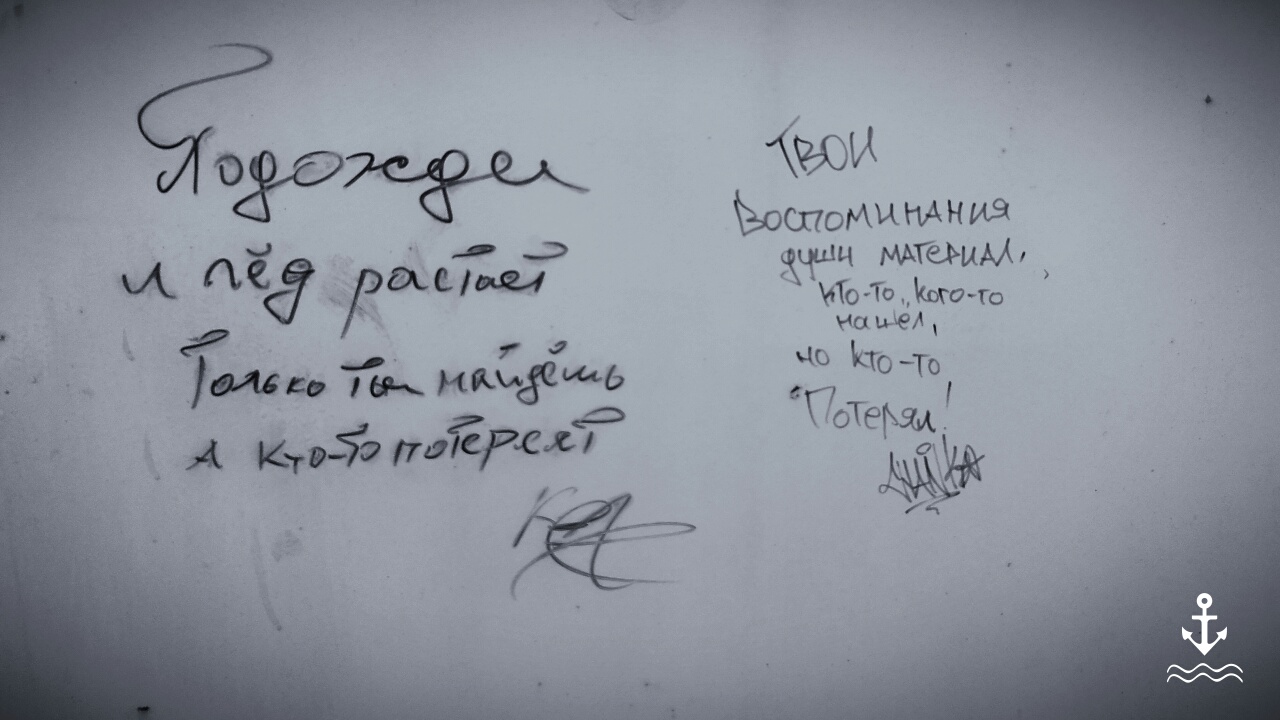 Подожди
и лёд растает
Только ты найдёшь
а кто-то потеряет
Твои
Воспоминания
души материал,
кто-то, кого-то
нашел,
но кто-то
Потерял!